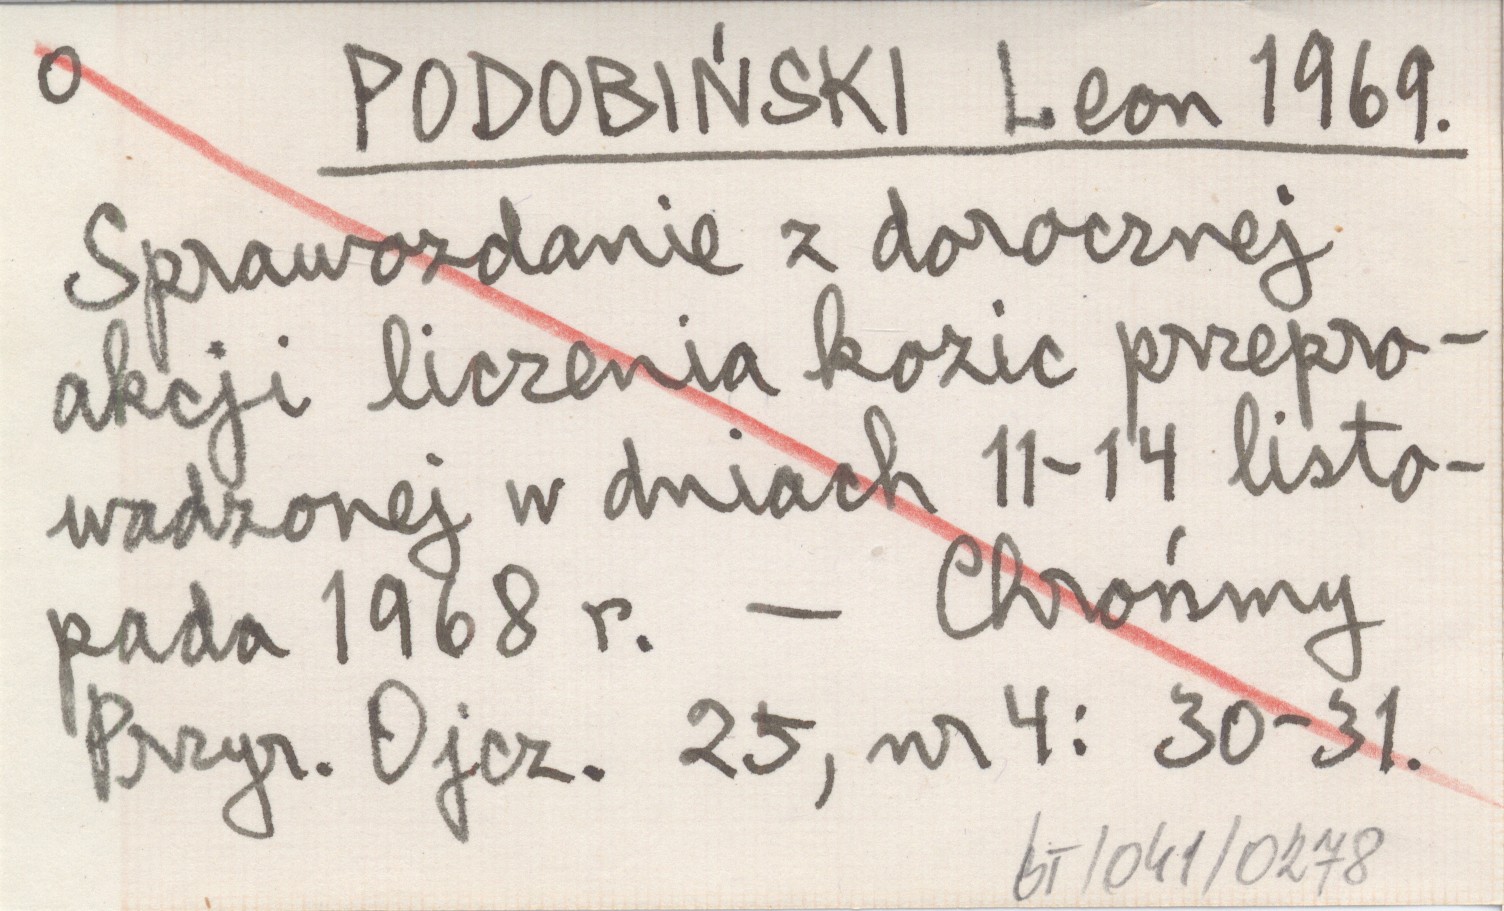 o PODOBIŃSKI Leon 1969.
Sprawozdanie z dorocznej
akcji liczenia kozic przepro-
wadzonej w dniach 11-14 listo-
pada 1968 r. — Chrońmy
Przyr. Ojcz. 25, nr 4: 30-31.
bT/041/0278